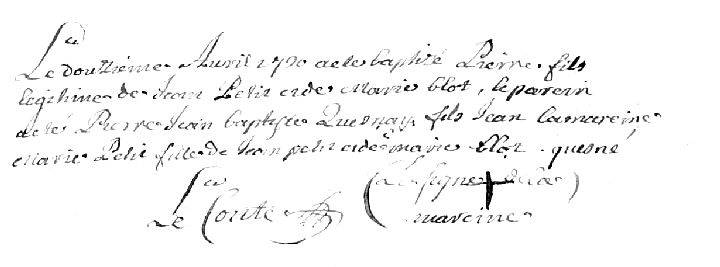 Le douzieme Avril 1720 a ete baptizé Pierre fils
legitime de Jean Petit et de Marie blot, le parein
a eté Pierre Jean baptiste Quesnay fils Jean la mareine
Marie Petit fille de Jean petit et de marie blot
Le Conte
( le signe + de la )
mareine